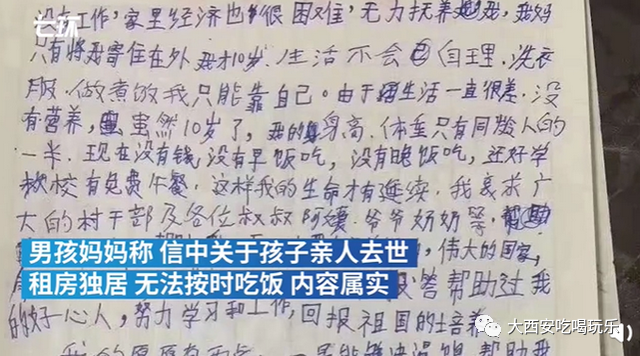 七环
没有工作,家里经济也很困难,无力扶养我,我妈
只有将我寄住在外 我才10岁.生活不会自理.洗衣
服.做煮饭我只能靠自己.由于生活一直很差.没
有营养,虽然10岁了,我的身高.体重只有同龄人的
一半.现在没有钱,没有早饭吃,没有晚饭吃,还好学
校有免费午餐.这样我的生命才有延续.我哀求广
大的村干部及各位叔叔阿姨.爷爷奶奶等,
男孩妈妈称 信中关于孩子亲人去世
伟大的国家,
租房独居 无法按时吃饭 内容属实
答帮助过我
的好心人,努力学习和工作,回报祖国的培养
大西安吃喝玩乐